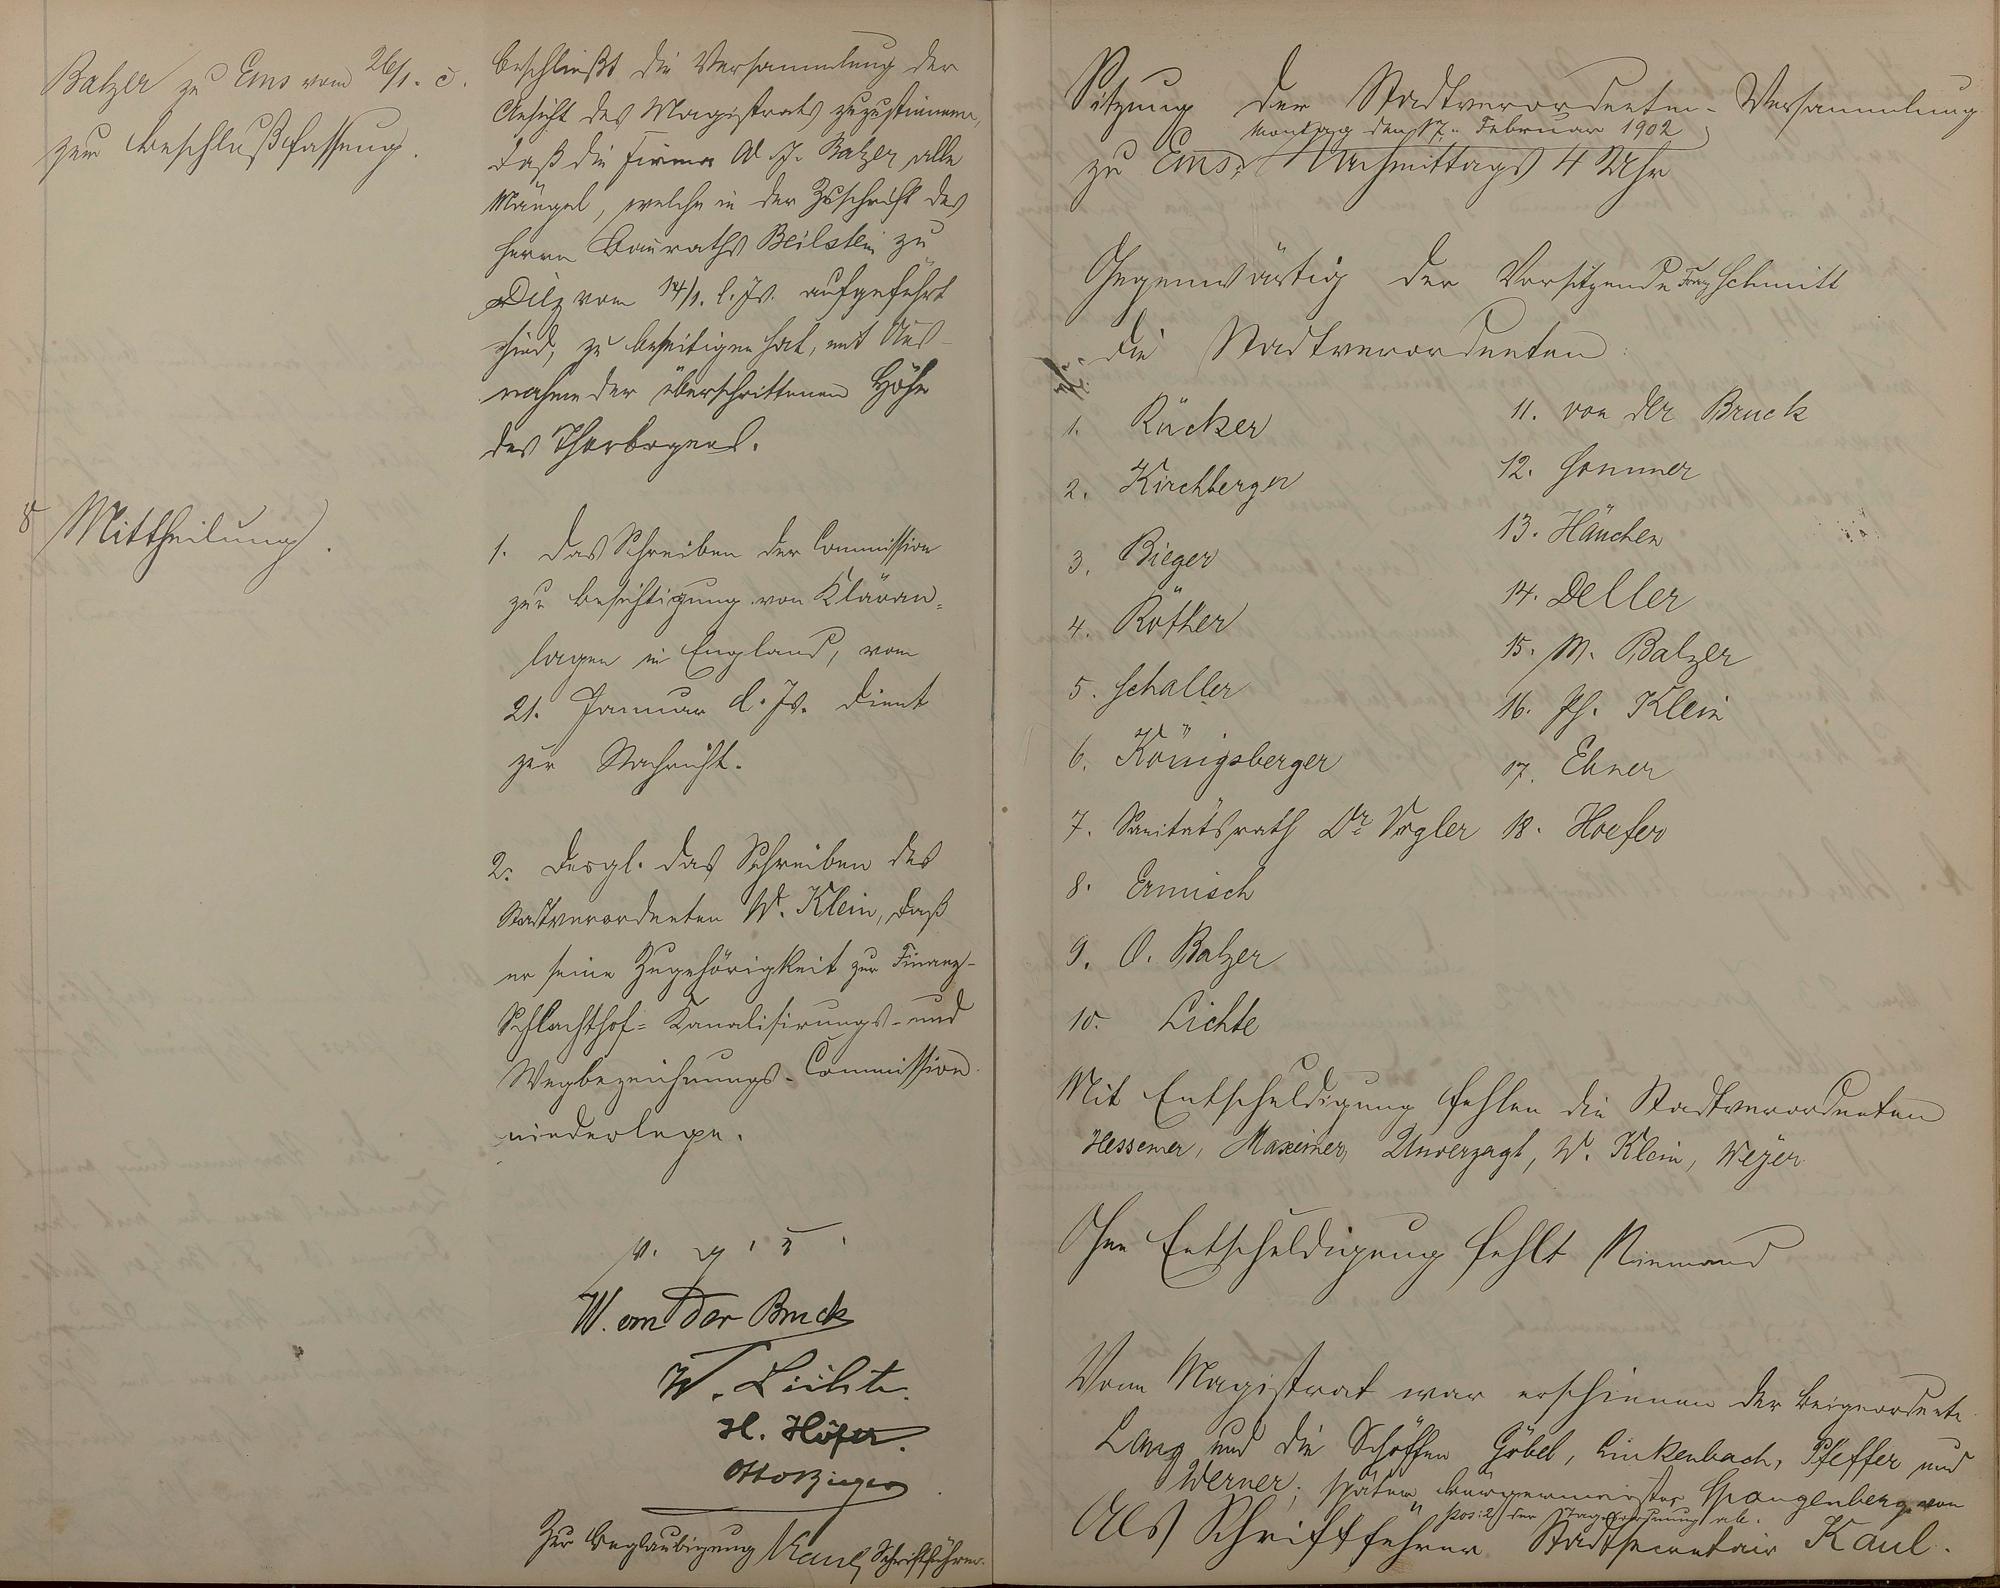 Balzer zu Ems vom 26/1. c.
zur Beschlußfassung.
beschließt die Versammlung der
Ansicht des Magistrats zuzustimmen,
daß die Firma A. J. Balzer alle
Mängel, welche in der Zuschrift des
Herrn Bauraths Beilstein zu
Diez vom 14/1. l. Js. aufgeführt
sind, zu beseitigen hat, mit Aus-
nahme der überschrittenen Höhe
des Thorbogens.
8 Mittheilung.
1. Das Schreiben der Commission
zur Besichtigung von Kläran=
lagen in England, vom
21. Januar d. Js. dient
zur Nachricht.
2. Desgl. das Schreiben des
Stadtverordneten W. Klein, daß
er seine Zugehörigkeit zur Finanz-
Schlachthof= Kanalisirungs- und
Wegbezeichnungs-Commission
niederlege.
v. g. u.
W. von der Bruck
W. Lichte.
H. Höfer.
Otto Bieger
Zur Beglaubigung Kaul, Schriftführer.
Sitzung der Stadtverordneten-Versammlung
Montag den 17. Februar 1902
zu Ems, Nachmittags 4 Uhr
Gegenwärtig der Vorsitzende Franz Schmitt
die Stadtverordneten:
1. Rücker
2. Kirchberger
3. Bieger
4. Röther
5. Schaller
6. Königsberger
7. Sanitätsrath Dr. Vogler
8. Ermisch
9. O. Balzer
10. Lichte
11. von der Bruck
12. Sommer
13. Häuchen
14. Deller
15. M. Balzer
16. Ph. Klein
17. Ebner
18. Hoefer
Mit Entschuldigung fehlen die Stadtverordneten
Hessemer, Maxeiner, Unverzagt, W. Klein, Weyer
Ohne Entschuldigung fehlt Niemand
Vom Magistrat war erschienen der Beigeordnete
Lang und die Schöffen Göbel, Linkenbach, Pfeffer und
Werner; später Bürgermeister Spangenberg von
Pos: 2 der Tagesordnung ab.
Als Schriftführer Stadtsecretair Kaul.